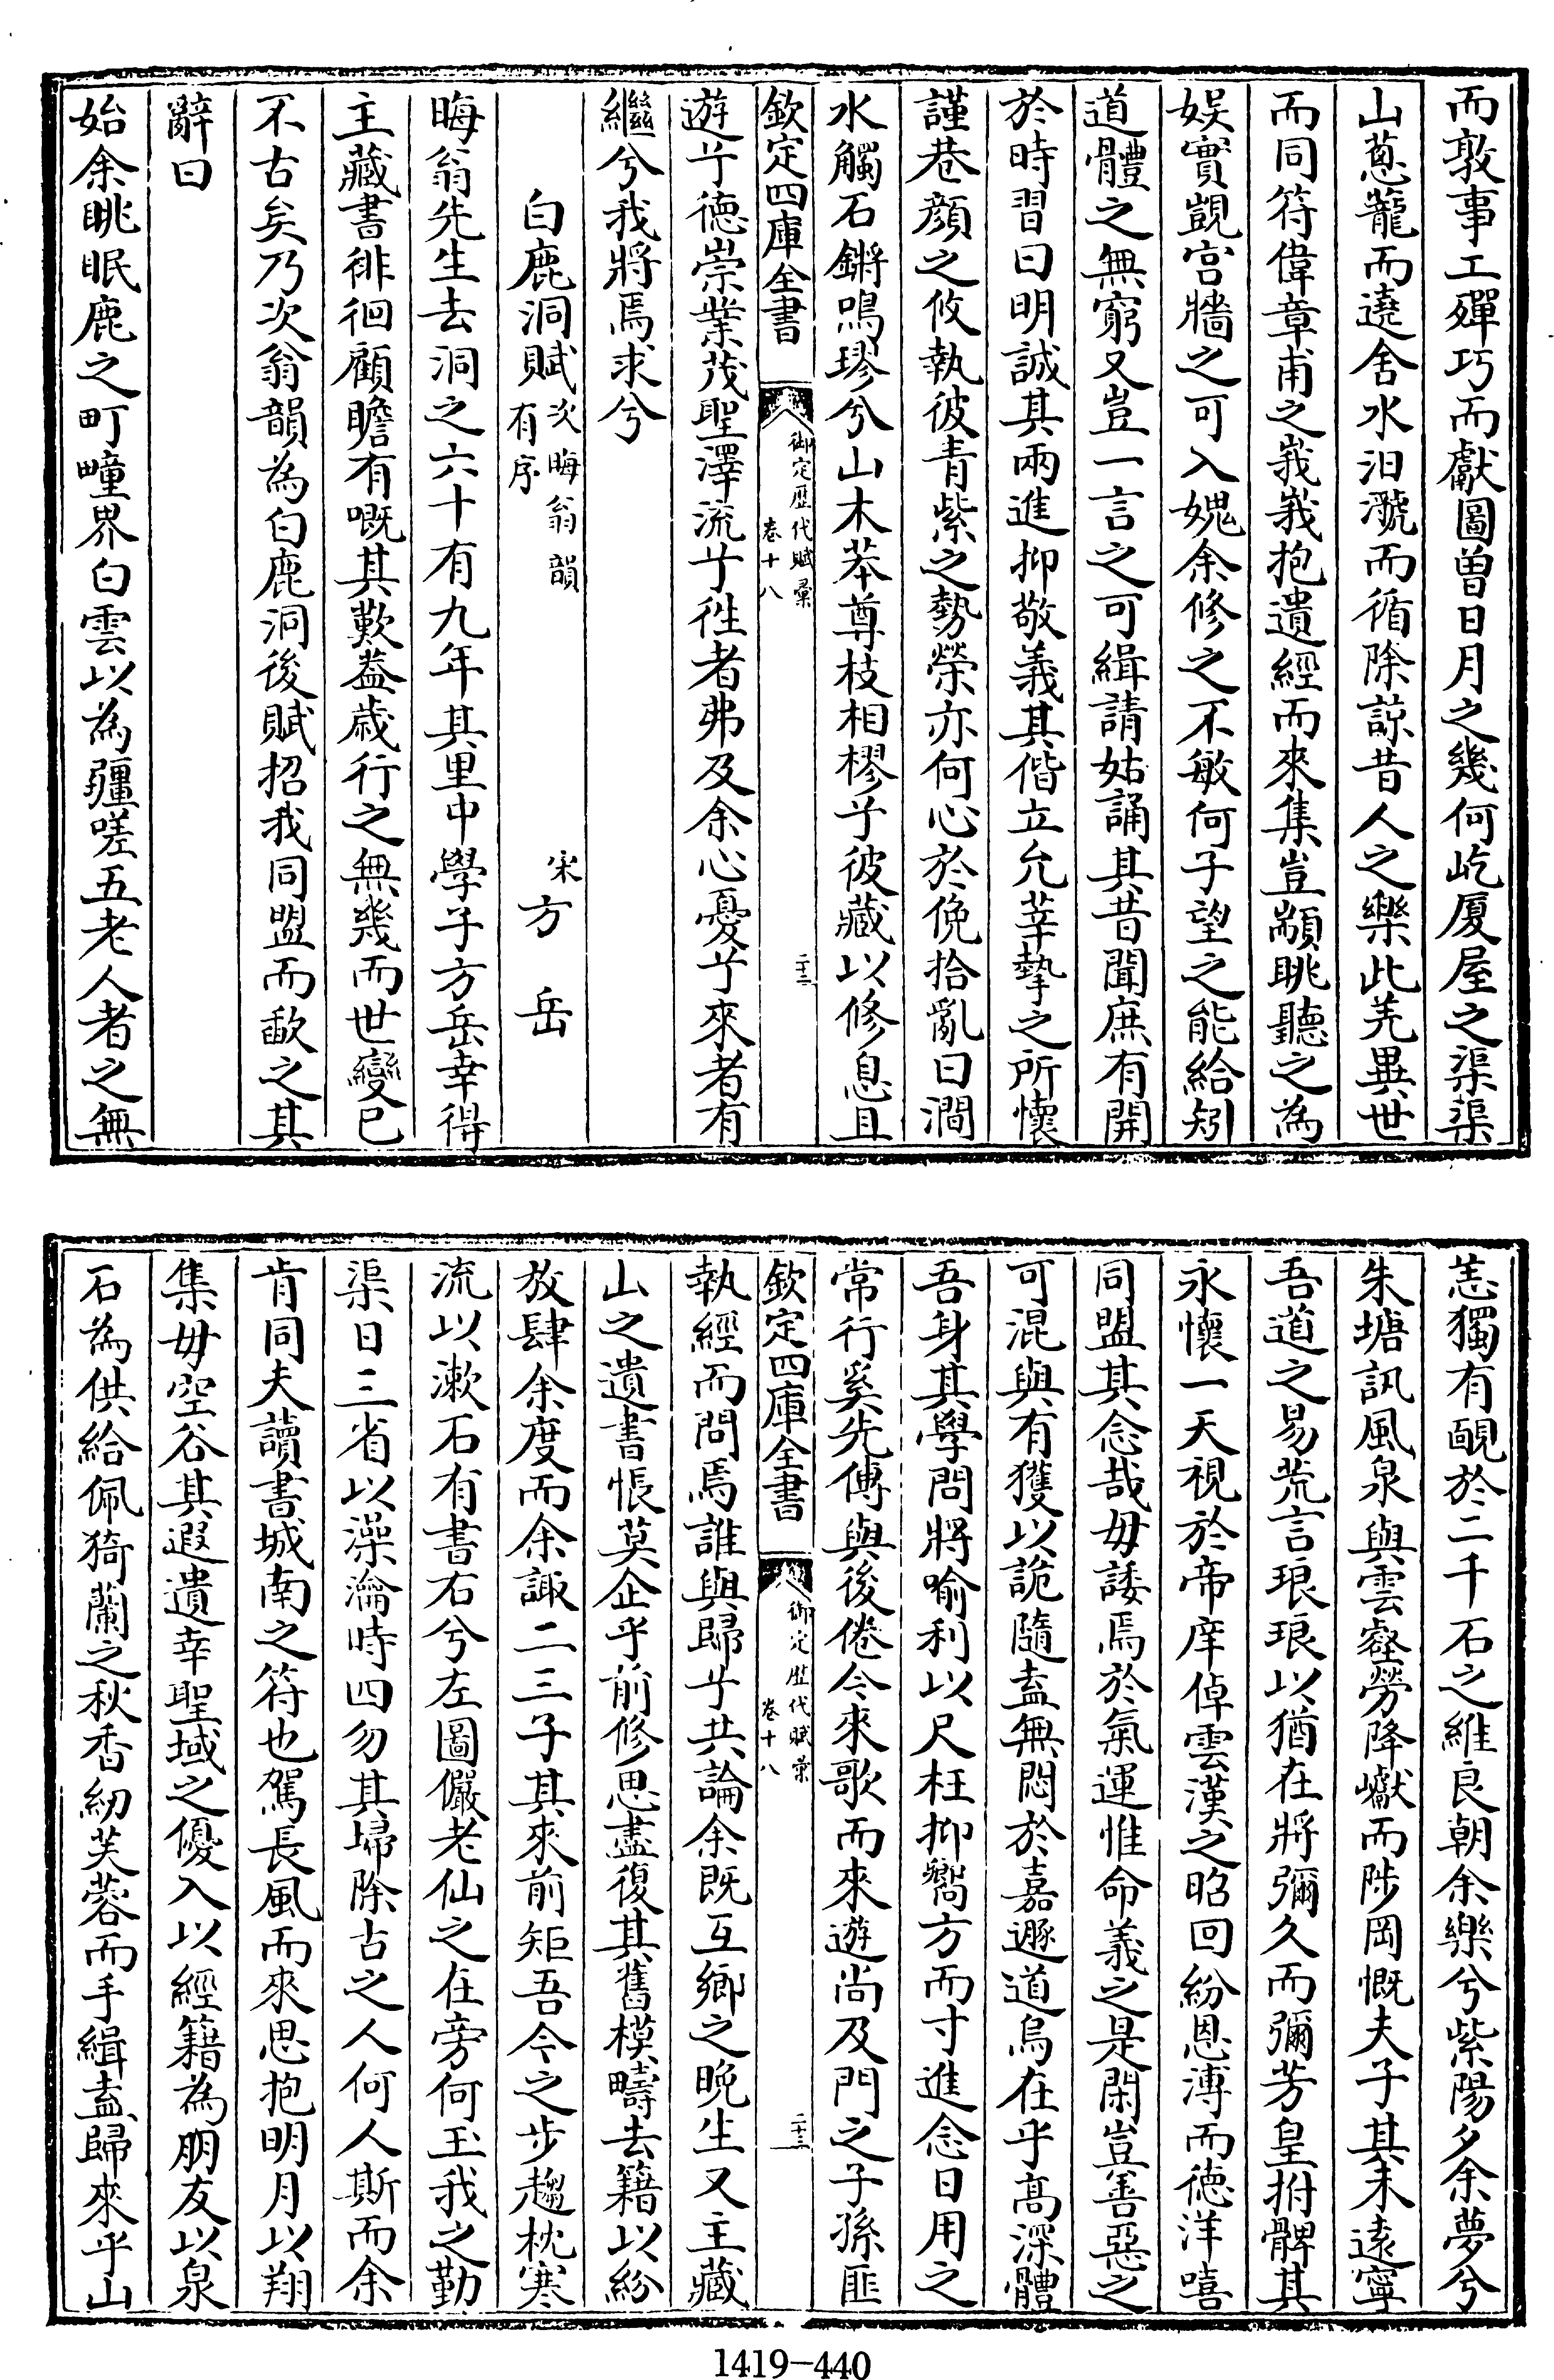 而敦事工殫巧而獻圖曽日月之幾何屹厦屋之渠渠
山蔥蘢而遶舍水汨㶁而循除諒昔人之樂此羌異世
而同符偉章甫之峩峩抱遺經而來集豈顓眺聽之為
娯實覬宫牆之可入媿余修之不敏何子望之能給矧
道體之無窮又豈一言之可緝請姑誦其昔聞庶有開
於時習曰明誠其兩進抑敬義其偕立允莘摯之所懷
謹巷顔之攸執彼青紫之勢榮亦何心於俛拾亂曰澗
水觸石鏘鳴璆兮山木苯尊枝相樛兮彼藏以修息且
欽定四庫全書
御定歴代賦彙
卷十八
二十二
遊兮徳崇業茂聖澤流兮徃者弗及余心憂兮來者有
繼兮我將焉求兮
白鹿洞賦次晦翁韻
有序
宋方岳
晦翁先生去洞之六十有九年其里中學子方岳幸得
主藏書徘徊顧瞻有嘅其歎葢歳行之無幾而世變已
不古矣乃次翁韻為白鹿洞後賦招我同盟而㰸之其
辭曰
始余眺眠鹿之町疃界白雲以為疆嗟五老人者之無
恙獨有靦於二千石之維良朝余樂兮紫陽夕余夢兮
朱塘訊風泉與雲壑勞降巘而陟岡慨夫子其未遠寧
吾道之易荒言琅琅以猶在將彌久而彌芳皇拊髀其
永懷一天視於帝庠倬雲漢之昭回紛恩溥而徳洋嘻
同盟其念哉毋諉焉於氣運惟命義之是閑豈善惡之
可混與有獲以詭隨盍無悶於嘉遯道烏在乎髙深體
吾身其學問將喻利以尺枉抑嚮方而寸進念日用之
常行奚先傳與後倦今來歌而來遊尚及門之子孫匪
欽定四庫全書
御定歴代賦彙
卷十八
二十三
執經而問焉誰與歸兮共論余既互鄉之晚生又主藏
山之遺書悵莫企乎前修思盡復其舊模疇去籍以紛
放肆余度而余諏二三子其來前矩吾今之步趨枕寒
流以漱石有書右兮左圖儼老仙之在旁何玉我之勤
渠日三省以澡瀹時四勿其埽除古之人何人斯而余
肯同夫讀書城南之符也駕長風而來思抱明月以翔
集毋空谷其遐遺幸聖域之優入以經籍為朋友以泉
石為供給佩猗蘭之秋香紉芙蓉而手緝盍歸來乎山
1419-440